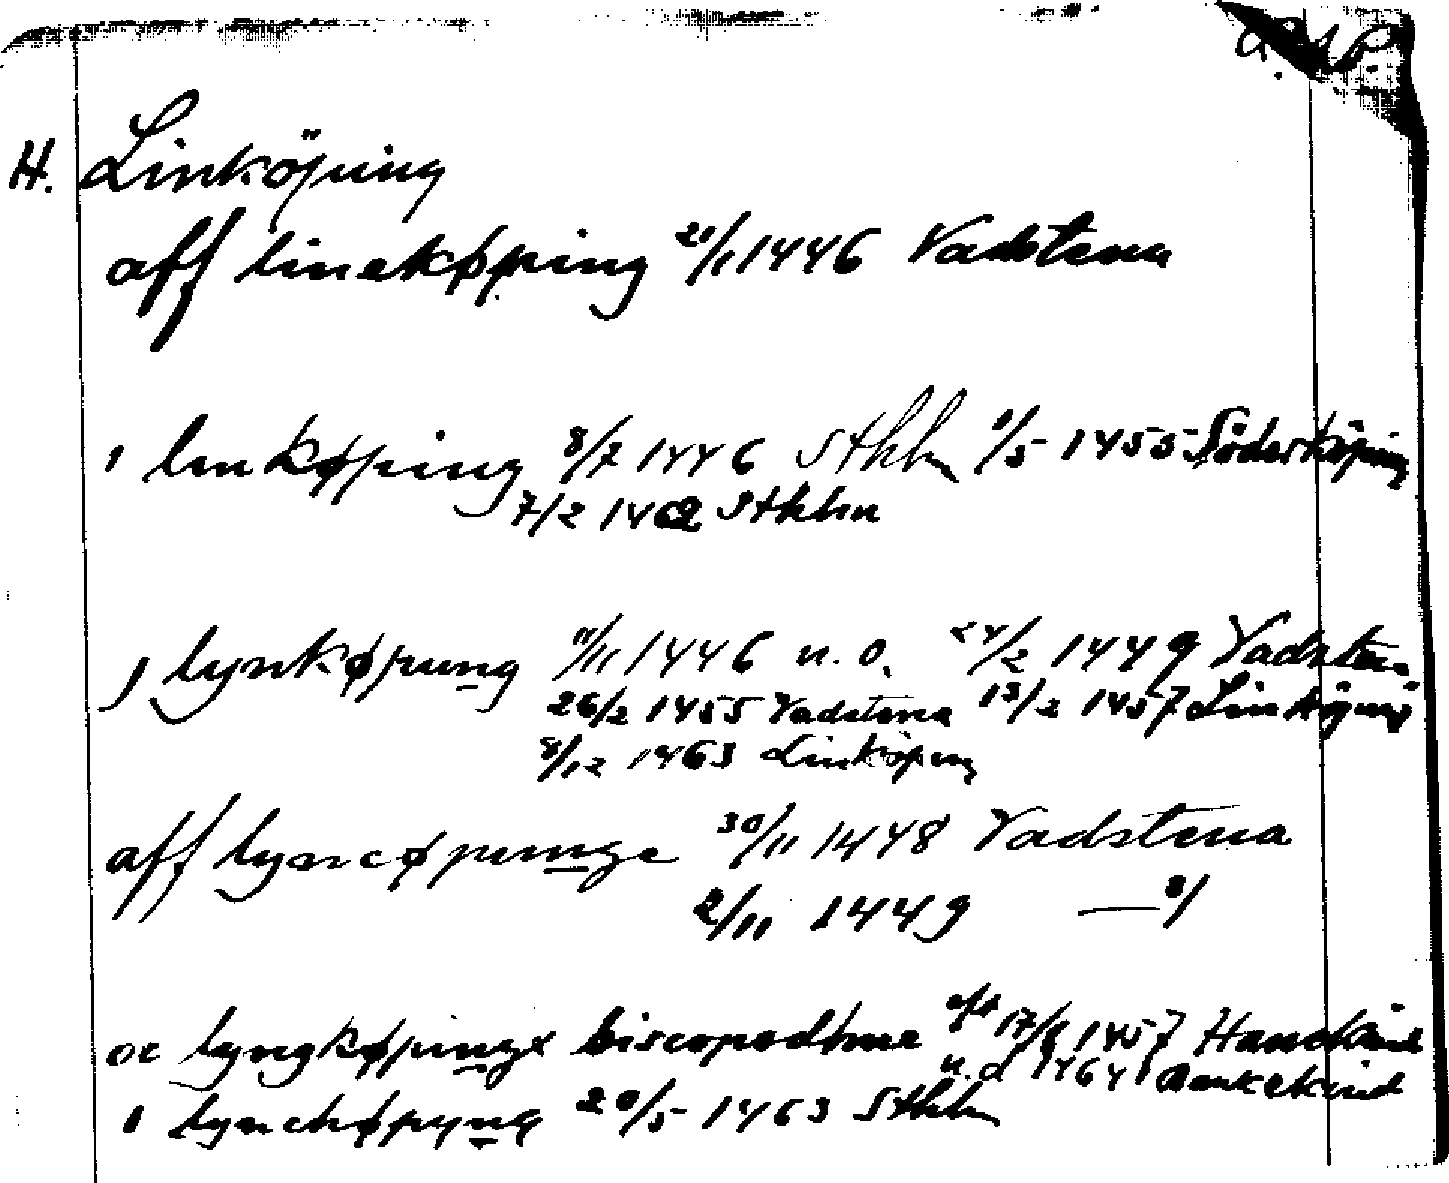 H. Linköping
aff linekøping 21/11 1446 Vadstena
i linkøping 8/7 1446 Sthlm 1/5 1455 Söderköping
7/2 1462 Sthlm
j lynkøpung 11/11 1446 u.o. 24/2 1449 Vadstena
26/2 1455 Vadstena 13/2 1457 Linköping
8/12 1463 Linköping
aff lyncøpunge 30/11 1448 Vadstena
2/11 1449 —"/
oc lyngkøpinge biscopsdøme eft 17/8 1457
u.d 1464
i lynchøpyng 20/5 1463 Sthlm